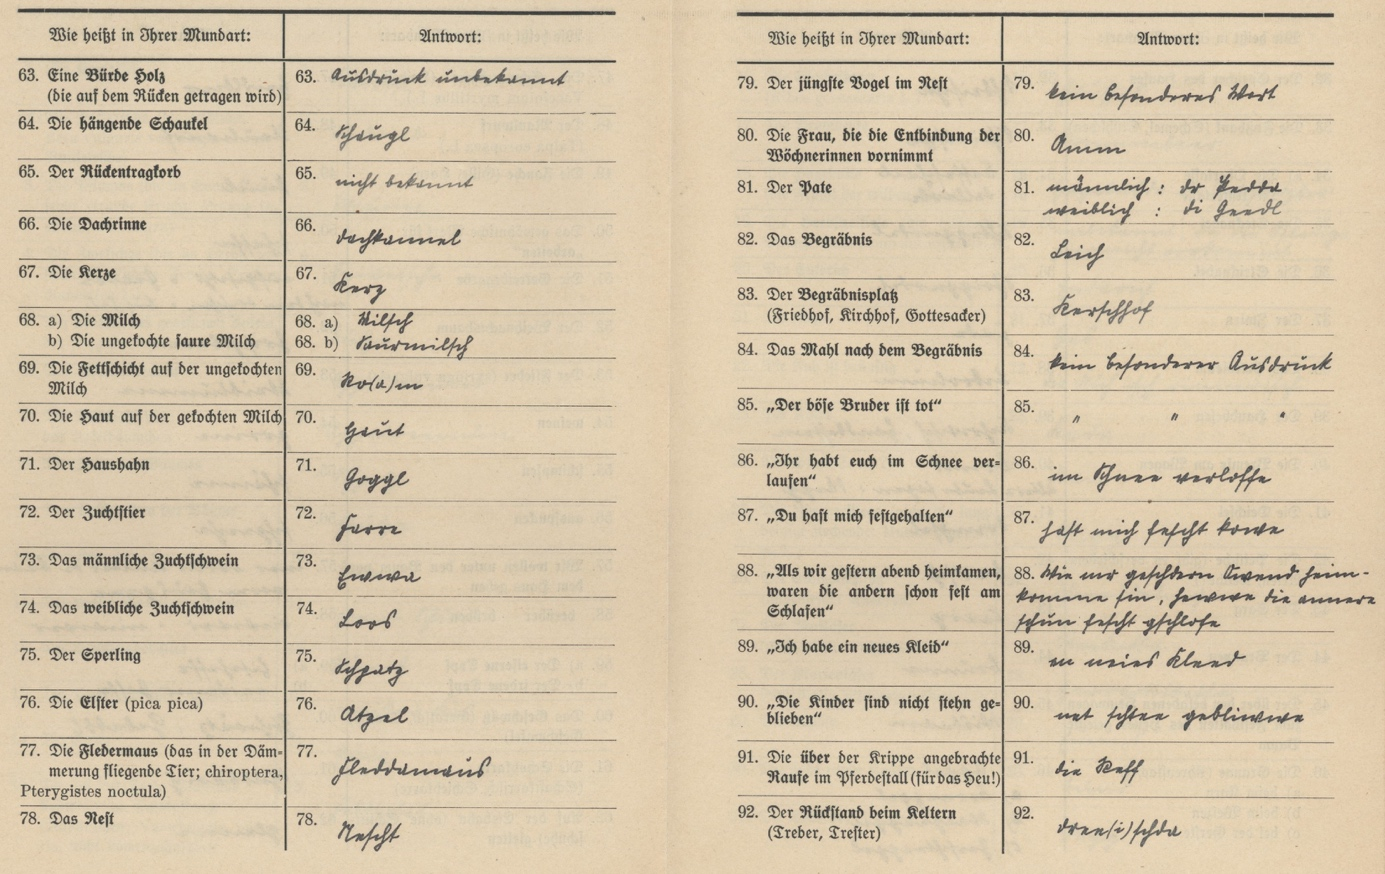 Wie heißt in Ihrer Mundart: Antwort:
63. Eine Bürde Holz
(die auf dem Rücken getragen wird)
63. Ausdruck unbekannt
64. Die hängende Schaukel
64. Schaugl
65. Der Rückentragkorb
65. nicht bekannt
66. Die Dachrinne
66. Dachkannel
67. Die Kerze
67. Kerz
68. a) Die Milch
68. a) Milsch
b) Die ungekochte saure Milch
68. b) Saurmilsch
69. Die Fettschicht auf der ungekochten
Milch
69. Ro(a)m
70. Die Haut auf der gekochten Milch
70. Haut
71. Der Haushahn
71. Goggl
72. Der Zuchtstier
72. Farre
73. Das männliche Zuchtschwein
73. Ewwa
74. Das weibliche Zuchtschwein
74. Loos
75. Der Sperling
75. Schpatz
76. Die Elster (pica pica)
76. Atzel
77. Die Fledermaus (das in der Däm-
merung fliegende Tier; chiroptera,
Pterygistes noctula)
77. Fleddamaus
78. Das Nest
78. Nescht
Wie heißt in Ihrer Mundart: Antwort:
79. Der jüngste Vogel im Nest
79. kein besonderes Wort
80. Die Frau, die die Entbindung der
Wöchnerinnen vornimmt
80. Amm
81. Der Pate
81. männlich : dr Pedda
weiblich : di Geedl
82. Das Begräbnis
82. Leich
83. Der Begräbnisplatz
(Friedhof, Kirchhof, Gottesacker)
83. Kerschhof
84. Das Mahl nach dem Begräbnis
84. kein besonderer Ausdruck
85. „Der böse Bruder ist tot“
85. " " "
86. „Ihr habt euch im Schnee ver-
laufen“
86. im Schnee verloffe
87. „Du hast mich festgehalten“
87. hast mich fescht kowe
88. „Als wir gestern abend heimkamen,
waren die andern schon fest am
Schlafen“
88. Wie mr geschdern Owend heim-
komme sin, hewwe die annere
schun fescht gschlofe
89. „Ich habe ein neues Kleid“
89. en neies Kleed
90. „Die Kinder sind nicht stehn ge-
blieben“
90. net schtee gebliwwe
91. Die über der Krippe angebrachte
Raufe im Pferdestall (für das Heu!)
91. die Reff
92. Der Rückstand beim Keltern
(Treber, Trester)
92. dree(i)schda